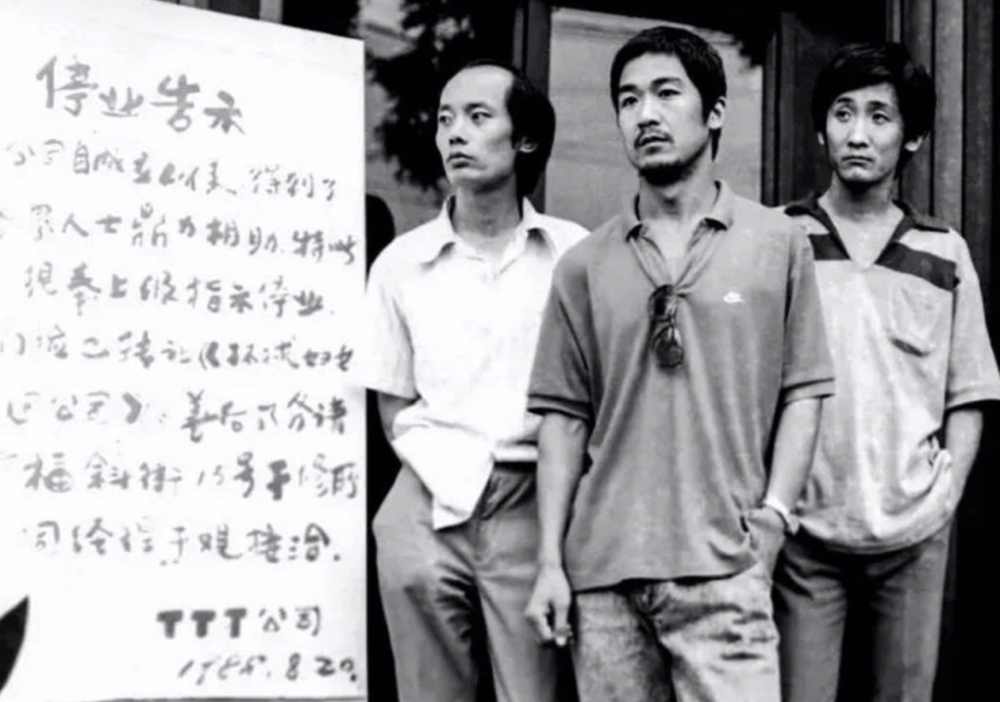 停业告示
公司自成立以来,得到了
界人士鼎力相助.特此
现奉上级指示停业.
门市已转让《环球妇女
公司》.善后事务请
福斜街15号干修所
司经理于观接洽.
TTT公司
1988.8.20.